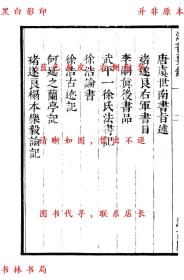 黑白影印 并非原本
法書要錄
唐虞世南書旨述
褚遂良右軍書目
李嗣真後書品
武平一徐氏法書記
徐浩論書
徐浩古迹記
何延之蘭亭記
褚遂良搨本樂毅論記
图书代寻，联系店长
书林书局